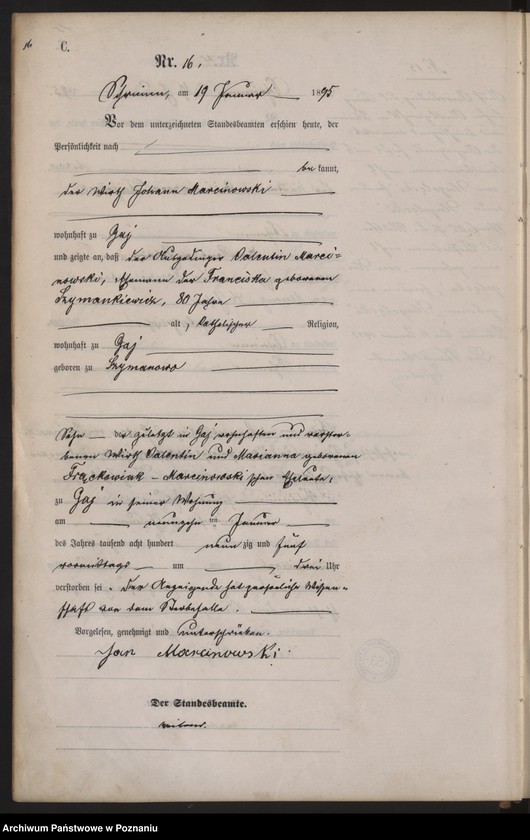 16
C.
Nr. 16.
Schrimm, am 19 Januar 1895
Vor dem unterzeichneten Standesbeamten erschien heute, der
Persönlichkeit nach
be kannt,
der Wirth Johann Marcinowski
wohnhaft zu Gaj
und zeigte an, daß der Ausgedinger Valentin Marci-
nowski, Ehemann der Franciska geborenen
Szymankiewicz, 80 Jahre
alt, katholischer Religion,
wohnhaft zu Gaj
geboren zu Szymanowo
Sohn der zuletzt in Gaj wohnhaften und verstor-
benen Wirth Valentin und Marianna geborenen
Frąckowiak - Marcinowski'schen Eheleute,
zu Gaj in seiner Wohnung
am neunzehn ten Januar
des Jahres tausend acht hundert neun zig und fünf
vormittags um drei Uhr
verstorben sei. Der Anzeigende hat persönliche Wissen-
schaft von dem Sterbefalle.
Vorgelesen, genehmigt und unterschrieben.
Jan Marcinowski
Der Standesbeamte.
Archiwum Państwowe w Poznaniu